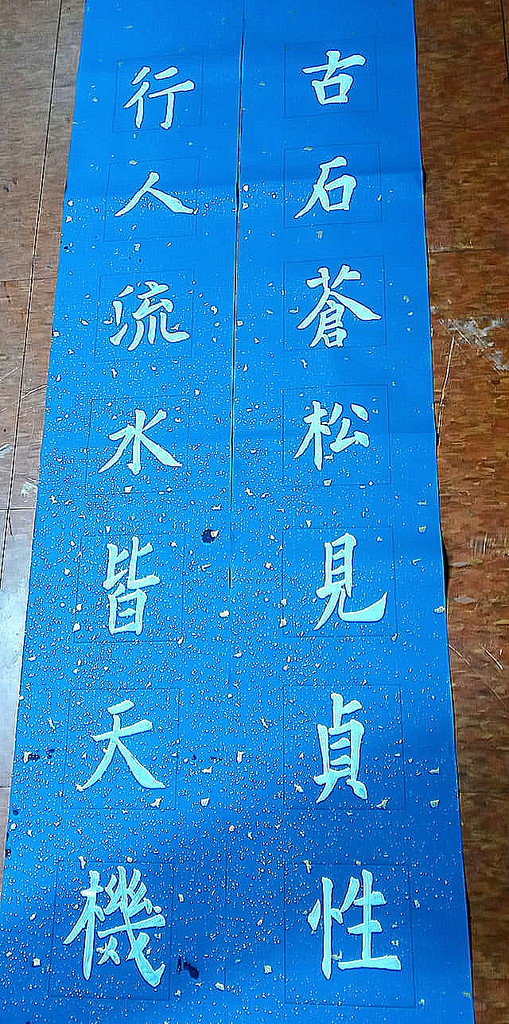 古石蒼松見貞性
行人流水皆天機